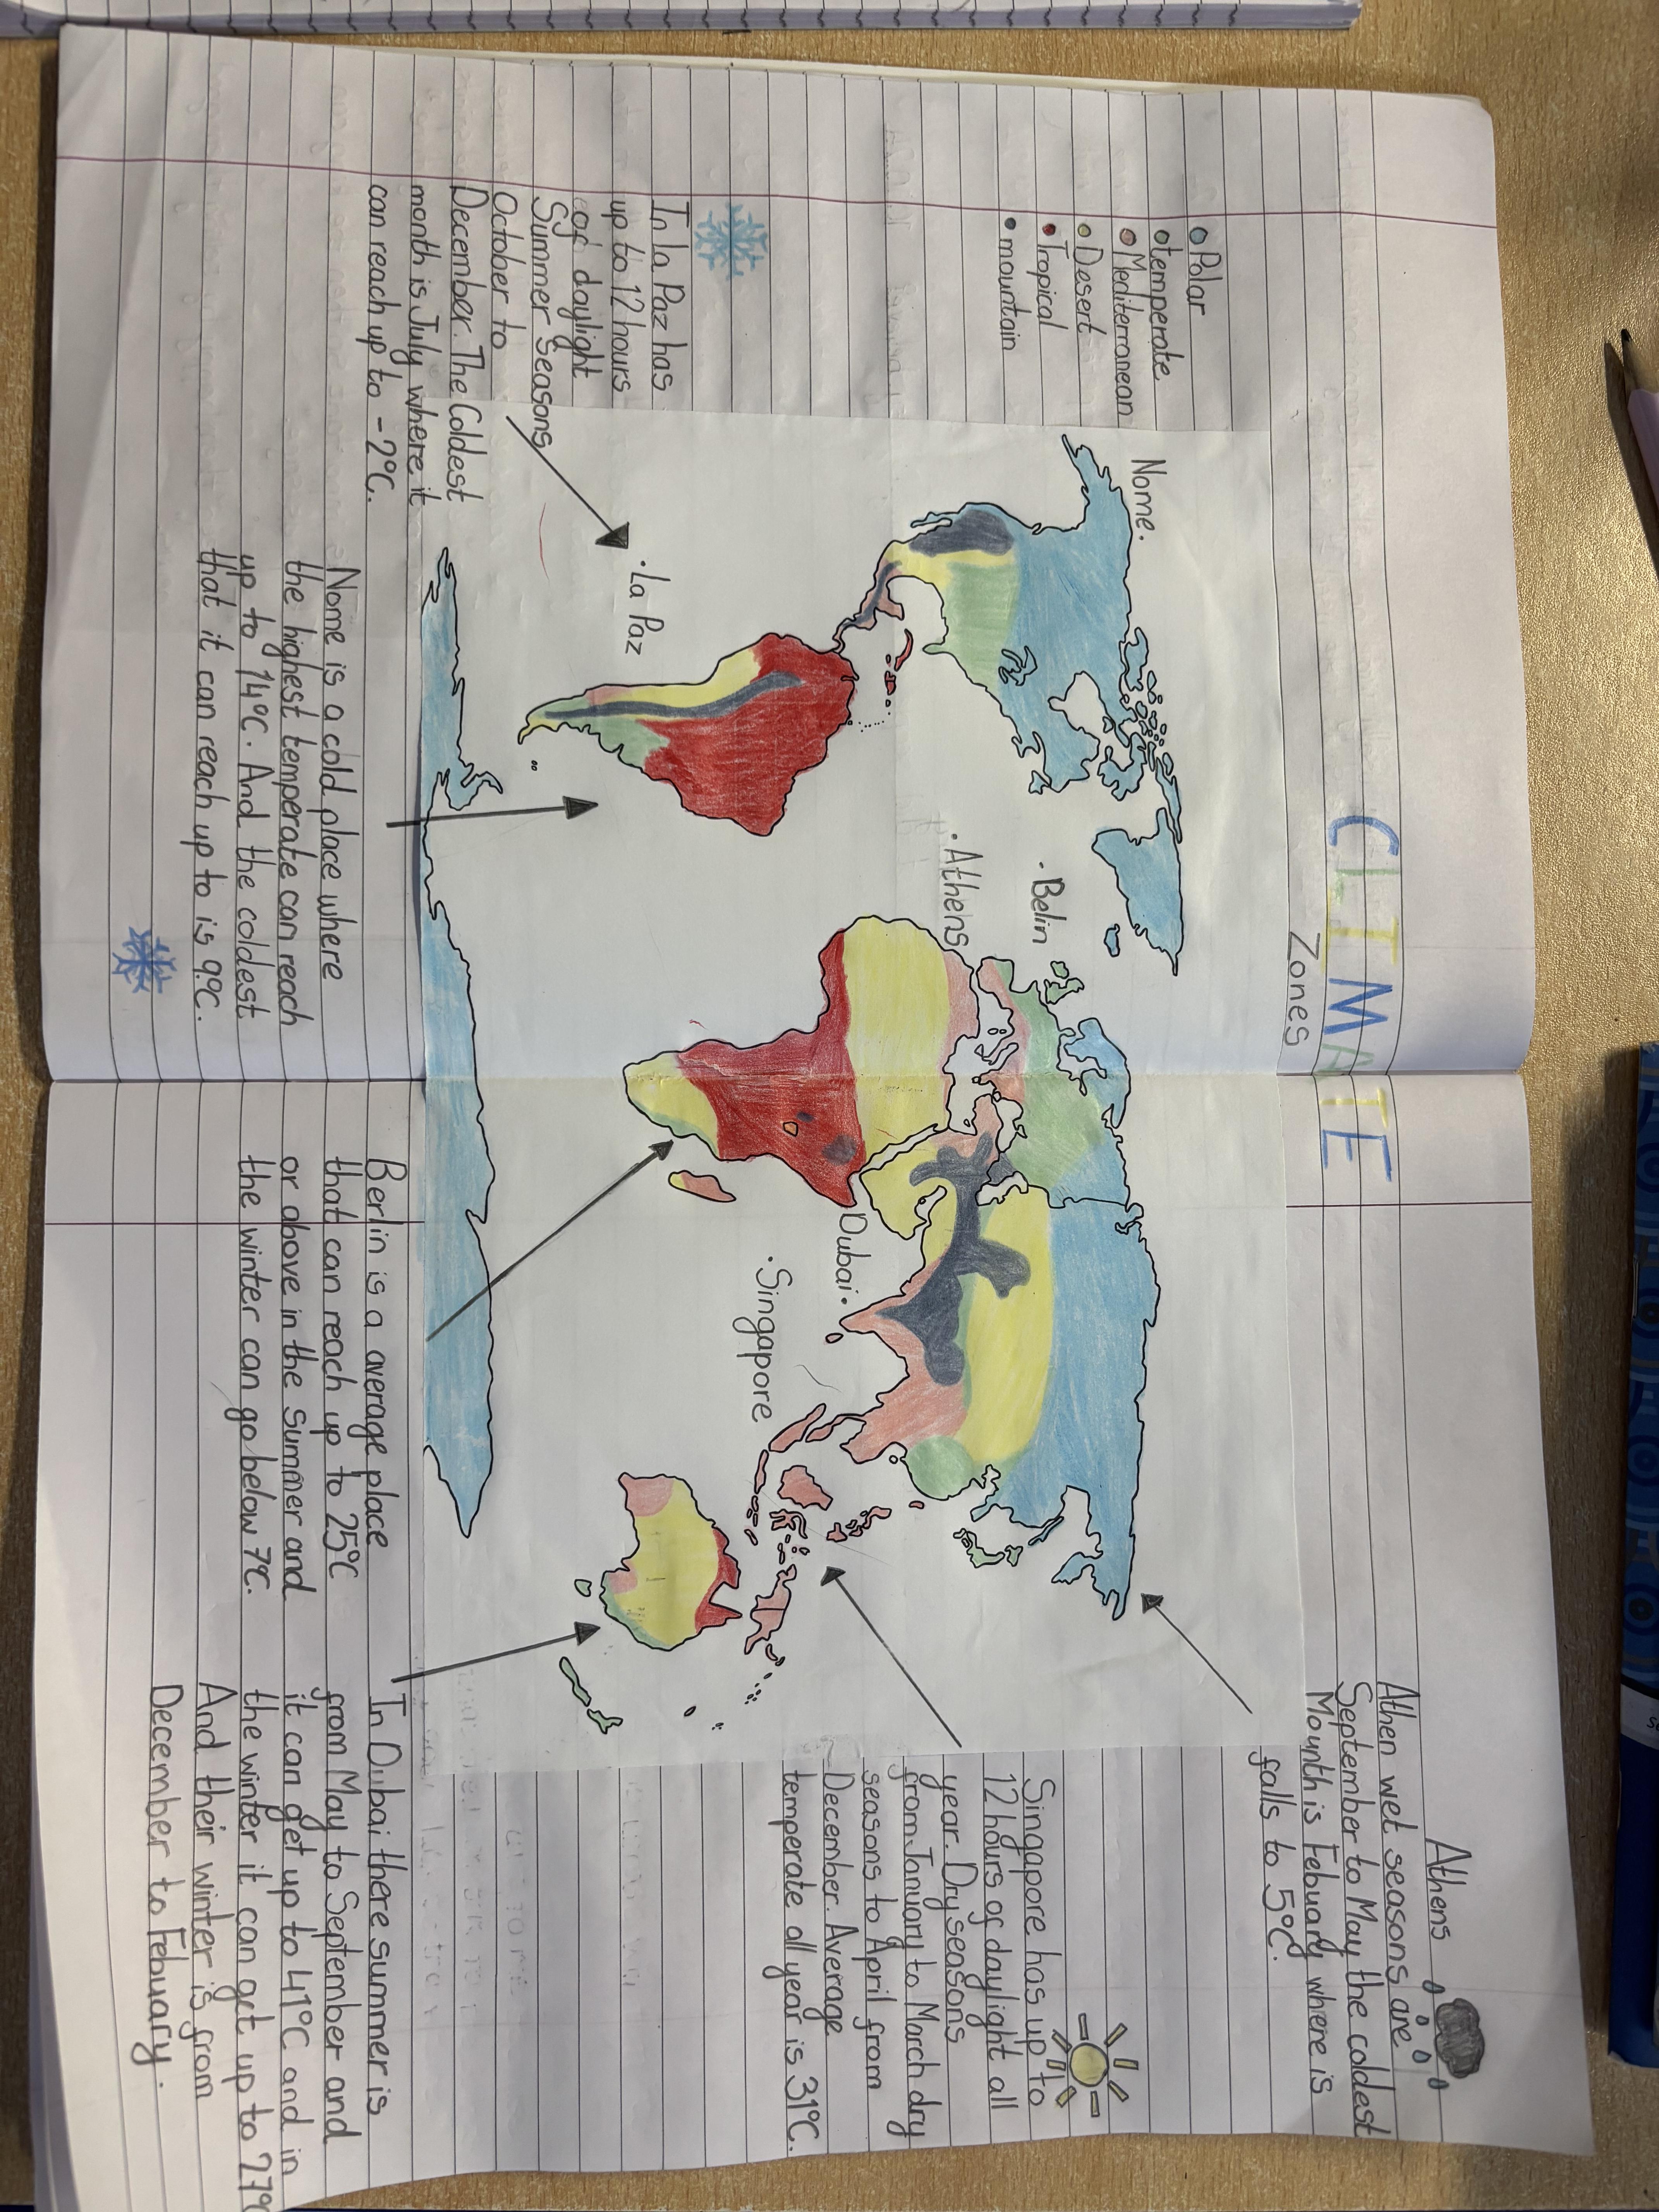 CLIMATE
Zones
• Polar
• temperate
• Mediterranean
• Desert
• Tropical
• mountain
In La Paz has
up to 12 hours
of daylight
Summer seasons
October to
December. The Coldest
month is July where it
can reach up to -2°C.
Nome is a cold place where
the highest temperate can reach
up to 14°C. And the coldest
that it can reach up to is 9°C.
Nome.
·La Paz
·Athens
·Belin
Dubai.
·Singapore
Berlin is a average place
that can reach up to 25°C
or above in the summer and
the winter can go below 7°C.
Athens
Athen wet seasons are
September to May the coldest
Mounth is Febuary where is
falls to 5°C.
Singapore has up to
12 hours of daylight all
year. Dry seasons
from January to March dry
seasons to April from
December. Average
temperate all year is 31°C.
In Dubai there summer is
from May to September and
it can get up to 41°C and in
the winter it can get up to 27°C
And their winter is from
December to Febuary.